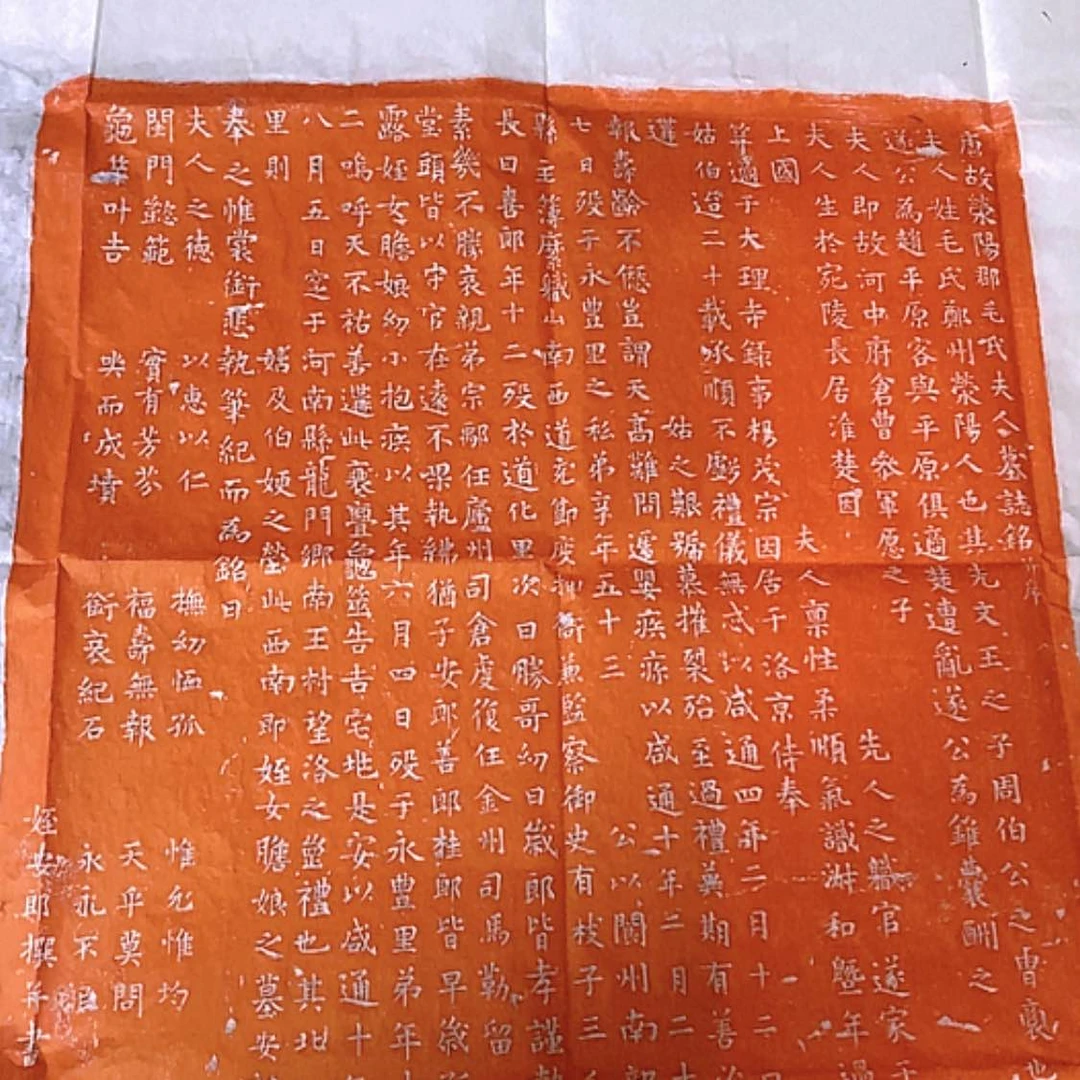 唐故滎陽郡毛氏夫人墓誌銘并序
夫人姓毛氏鄭州滎陽人也其先文王之子周伯公之曹裔也
遂公為趙平原客與平原俱適楚遭亂遂公為錐囊酬之
夫人即故河中府倉曹參軍愿之子 先人之職官遂家于
夫人生於宛陵長居淮楚因 夫人稟性柔順氣識淑和曁年過
上國
笄適于大理寺錄事楊茂宗因居于洛京侍奉
姑伯迨二十載承順不虧禮儀無忒以咸通四年二月十二日
遘 姑之艱號慕摧裂殆至過禮冀期有善
報壽齡不僽豈謂天高難問遽嬰疾瘵以咸通十年二月二十
七日歿于永豐里之私弟享年五十三 公以閬州南部
縣主簿 職山南西道充節度押衙兼監察御史有枝子三人
長曰喜郎年十二歿於道化里次曰勝哥幼曰歲郎皆孝謹
素幾不勝哀親弟宗鄢任廬州司倉虔復任金州司馬勒留
堂頭皆以守官在遠不果執紼猶子安郎善郎桂郎皆早歲
露姪女膽娘幼小抱疾以其年六月四日歿于永豐里弟年十
二嗚呼天不祐善遘此哀舋龜筮告吉宅地是安以咸通十
八月五日窆于河南縣龍門鄉南王村望洛之 禮也其北
里則 嬉及伯娒之塋此西南即姪女膽娘之墓安
奉之帷裳銜悲執筆紀而為銘曰
夫人之德 以惠以仁 撫幼恤孤 惟允惟均
閨門懿範 實有芳芬 福壽無報 天乎莫問
龜筮叶吉 兆而成墳 銜哀紀石 永永不
姪安郎撰并書